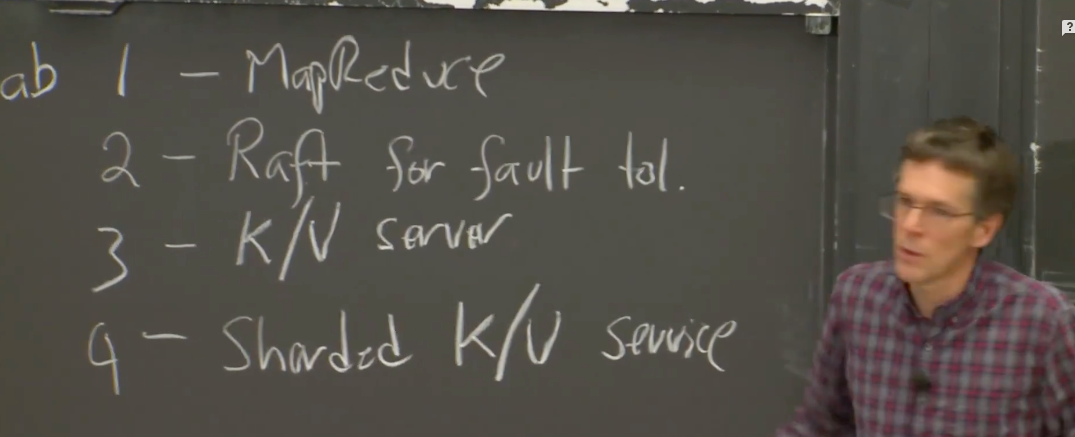 ab 1 - MapReduce
2 - Raft for fault tol.
3 - K/V server
4 - Sharded K/V service
?